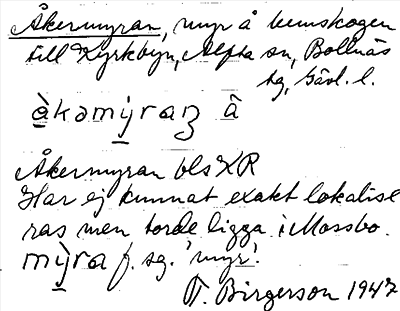 Åkermyran, myr å hemskogen
till Kyrkbyn, Alfta sn, Bollnäs
tg, Gävl. l.
àkəmỳraɳ å̂
Åkermyran bls XR
Har ej kunnat exakt lokalise
ras men torde ligga i Mossbo.
mỳra f. sg. 'myr'.
Birgerson 1947